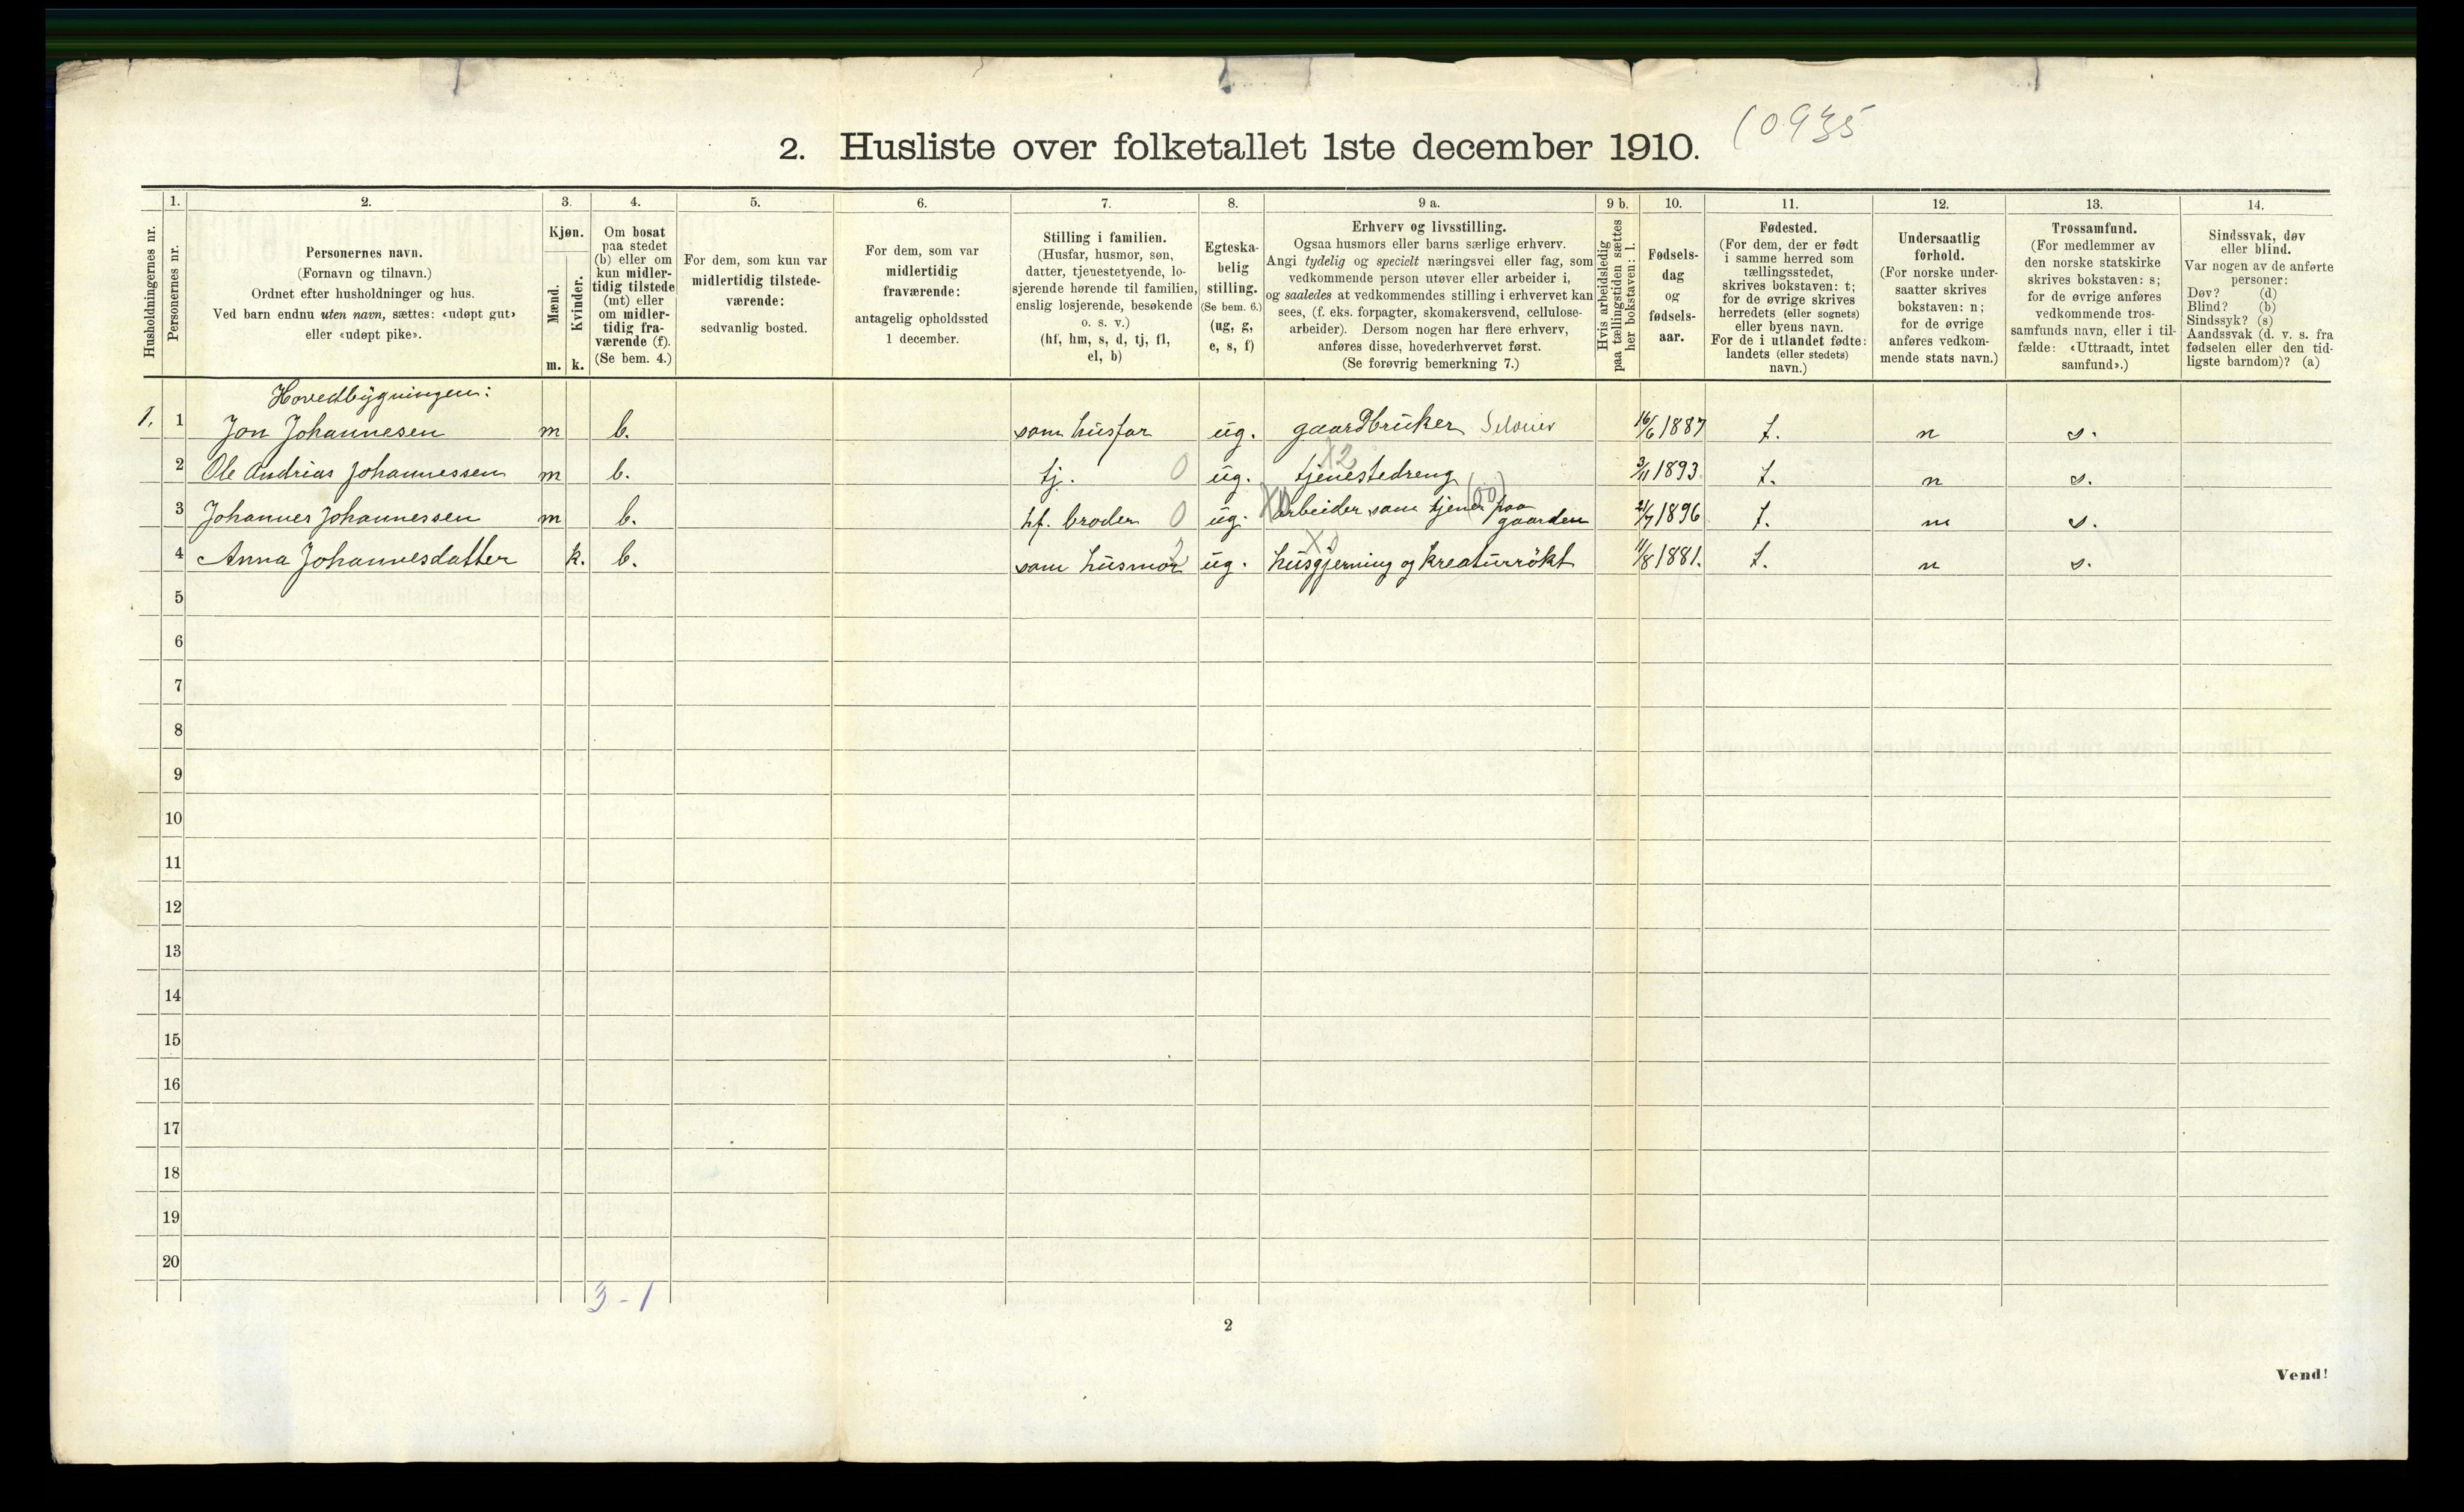 2. Husliste over folketallet 1ste december 1910.
Husholdningernes nr.
1.
Personernes nr.
2.
Personernes navn.
(Fornavn og tilnavn.)
Ordnet efter husholdninger og hus.
Ved barn endnu uten navn, sættes: «udøpt gut»
eller «udøpt pike».
3.
Kjøn.
Mænd.
Kvinder.
m. k.
4.
Om bosat
paa stedet
(b) eller om
kun midler-
tidig tilstede
(mt) eller
om midler-
tidig fra-
værende (f).
(Se bem. 4.)
5.
For dem, som kun var
midlertidig tilstede-
værende:
sedvanlig bosted.
6.
For dem, som var
midlertidig
fraværende:
antagelig opholdssted
1 december.
7.
Stilling i familien.
(Husfar, husmor, søn,
datter, tjenestetyende, lo-
sjerende hørende til familien,
enslig losjerende, besøkende
o. s. v.)
(hf, hm, s, d, tj, fl,
el, b)
8.
Egteska-
belig
stilling.
(Se bem. 6.)
(ug, g,
e, s, f)
9 a.
Erhverv og livsstilling.
Ogsaa husmors eller barns særlige erhverv.
Angi tydelig og specielt næringsvei eller fag, som
vedkommende person utøver eller arbeider i,
og saaledes at vedkommendes stilling i erhvervet kan
sees, (f. eks. forpagter, skomakersvend, cellulose-
arbeider). Dersom nogen har flere erhverv,
anføres disse, hovederhvervet først.
(Se forøvrig bemerkning 7.)
9 b.
Hvis arbeidsledig
paa tællingstiden sættes
her bokstaven: l.
10.
Fødsels-
dag
og
fødsels-
aar.
11.
Fødested.
(For dem, der er født
i samme herred som
tællingsstedet,
skrives bokstaven: t;
for de øvrige skrives
herredets (eller sognets)
eller byens navn.
For de i utlandet fødte:
landets (eller stedets)
navn.)
12.
Undersaatlig
forhold.
(For norske under-
saatter skrives
bokstaven: n;
for de øvrige
anføres vedkom-
mende stats navn.)
13.
Trossamfund.
(For medlemmer av
den norske statskirke
skrives bokstaven: s;
for de øvrige anføres
vedkommende tros-
samfunds navn, eller i til-
fælde: «Uttraadt, intet
samfund».)
14.
Sindssvak, døv
eller blind.
Var nogen av de anførte
personer:
Døv? (d)
Blind? (b)
Sindssyk? (s)
Aandssvak (d. v. s. fra
fødselen eller den tid-
ligste barndom)? (a)
Hovedbygningen:
1. 1 Jon Johannesen m b. som husfar ug. gaardbruker Selveier 16/6 1887 t. n s.
2 Ole Andrias Johannessen m b. tj. 0 ug. tjenestedreng X2 3/11 1893 t. n s.
3 Johannes Johannessen m b. hf. broder 0 ug. arbeider som tjener paa gaarden (00) 21/7 1896 t. n s.
4 Anna Johannesdatter k. b. som husmor 2 ug. husgjerning og kreaturrökt 11/8 1881. t. n s.
5
6
7
8
9
10
11
12
13
14
15
16
17
18
19
20
3 - 1
2
Vend!